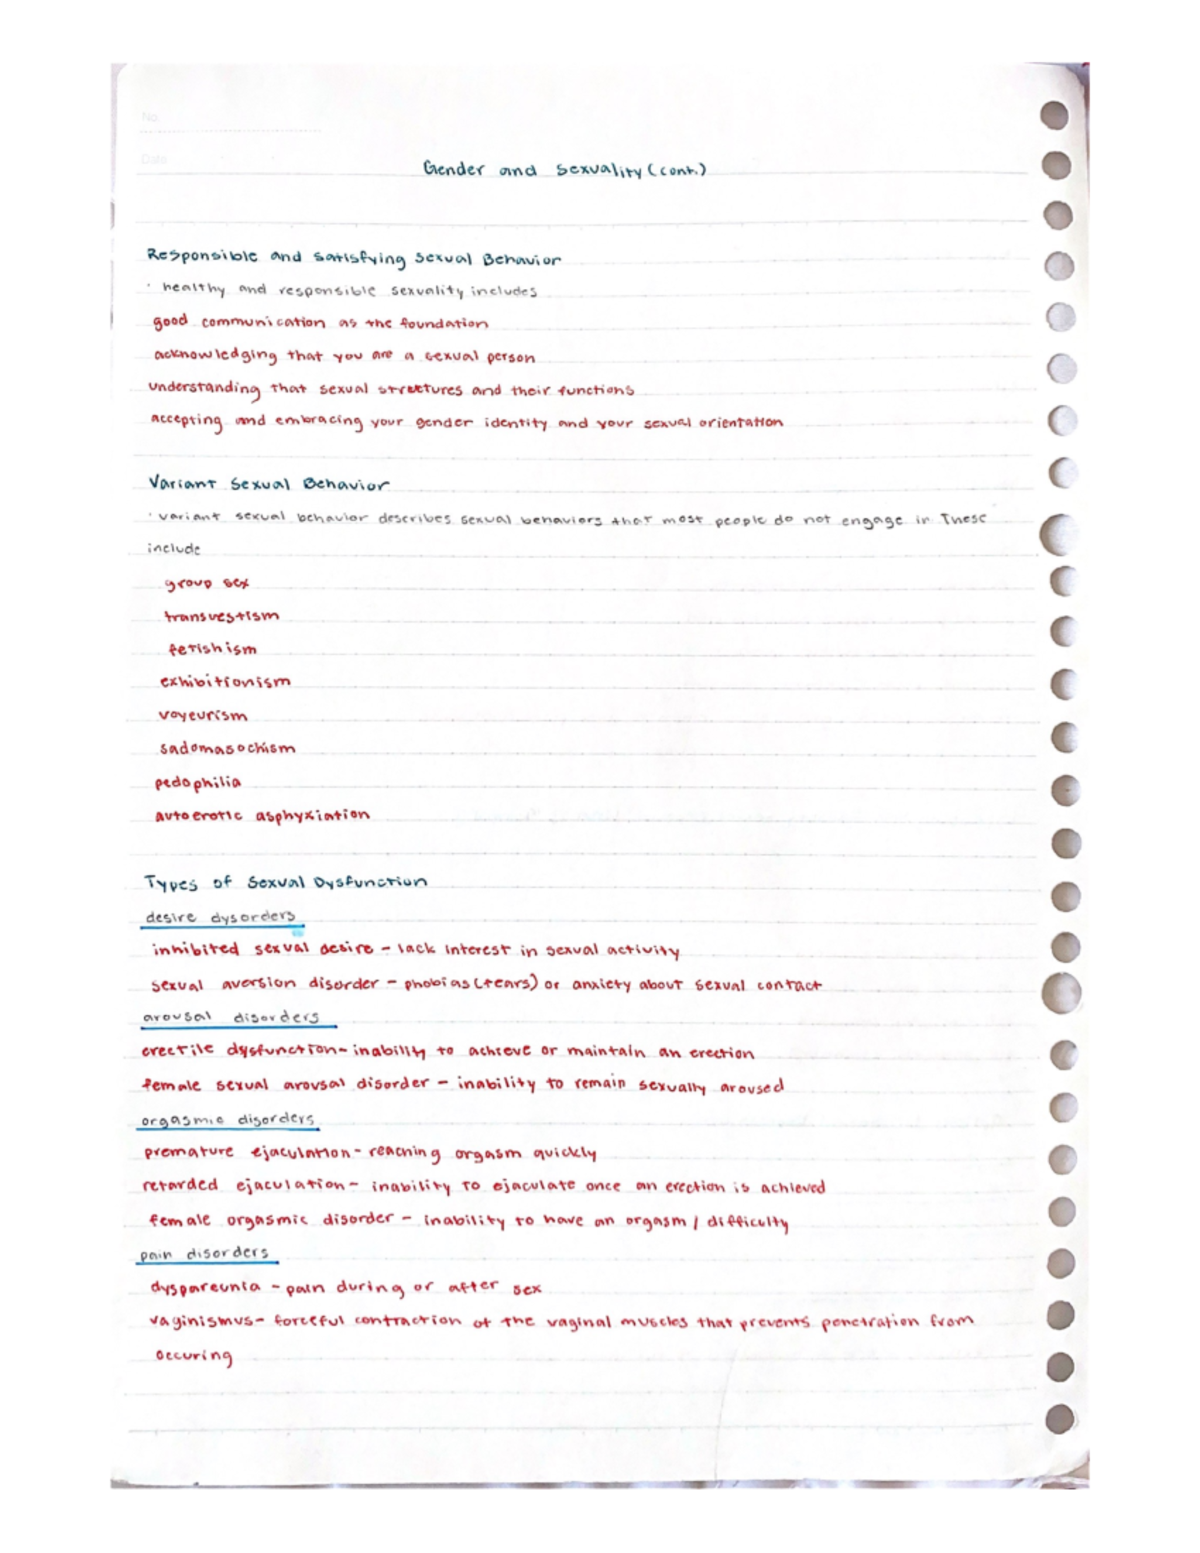 No.
Date
Gender and Sexuality (cont.)
Responsible and Satisfying Sexual Behavior
· healthy and responsible sexuality includes
good communication as the foundation
acknowledging that you are a sexual person
understanding that sexual structures and their functions
accepting and embracing your gender identity and your sexual orientation
Variant Sexual Behavior
· variant sexual behavior describes sexual behaviors that most people do not engage in These
include
group sex
transvestism
fetishism
exhibitionism
voyeurism
sadomasochism
pedophilia
autoerotic asphyxiation
Types of Sexual Dysfunction
desire dysorders
inhibited sexual desire - lack interest in sexual activity
sexual aversion disorder - phobias (fears) or anxiety about sexual contact
arousal disorders
erectile dysfunction- inability to achieve or maintain an erection
female sexual arousal disorder - inability to remain sexually aroused
orgasmic disorders
premature ejaculation- reaching orgasm quickly
retarded ejaculation- inability to ejaculate once an erection is achieved
female orgasmic disorder - inability to have an orgasm / difficulty
pain disorders
dyspareunia - pain during or after sex
vaginismus- forceful contraction of the vaginal muscles that prevents penetration from
occuring